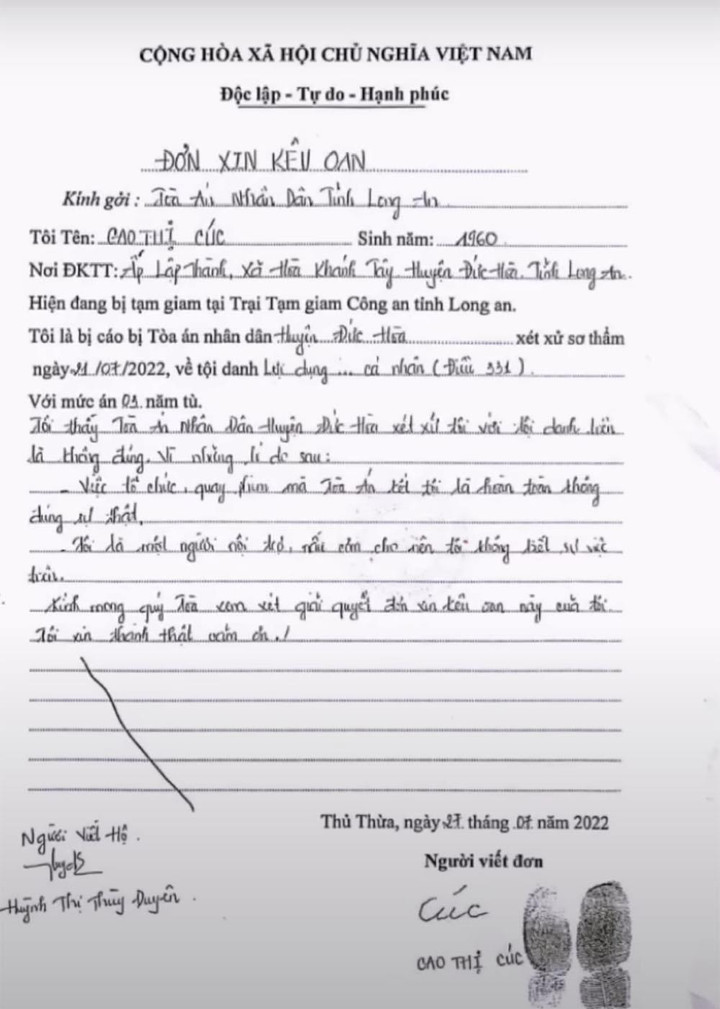 CỘNG HÒA XÃ HỘI CHỦ NGHĨA VIỆT NAM
Độc lập - Tự do - Hạnh phúc
ĐƠN XIN KÊU OAN
Kính gởi : Toà Án Nhân Dân Tỉnh Long An
Tôi Tên: CAO THỊ CÚC Sinh năm: 1960
Nơi ĐKTT: Ấp Lập Thành, Xã Hòa Khánh Tây, Huyện Đức Hòa, Tỉnh Long An.
Hiện đang bị tạm giam tại Trại Tạm giam Công an tỉnh Long an.
Tôi là bị cáo bị Tòa án nhân dân Huyện Đức Hòa xét xử sơ thẩm
ngày 21/07/2022, về tội danh Lợi dụng ... cá nhân (Điều 331).
Với mức án 03 năm tù.
Tôi thấy Toà Án Nhân Dân Huyện Đức Hòa xét xử tôi với tội danh trên
là không đúng. Vì những lí do sau:
- Việc tổ chức, quay phim mà Toà Án kết tôi là hoàn toàn không
đúng sự thật.
- Tôi là một người nội trợ, nấu cơm cho nên tôi không biết sự việc
trên.
Kính mong quý Toà xem xét giải quyết đơn xin kêu oan này của tôi.
Tôi xin thành thật cảm ơn./
Thủ Thừa, ngày 27 tháng 07 năm 2022
Người Viết Hộ.
Người viết đơn
Huỳnh Thị Thùy Duyên.
Cúc
CAO THỊ CÚC